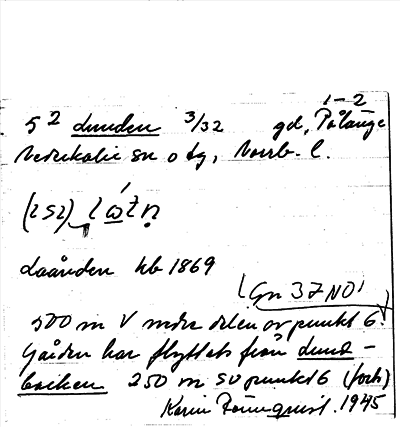 1-2
5² Lunden 3/32 gd, Pålänge
Nederkalix sn o tg, Norrb. l.
(252)
Laånden hb 1869
(Gn 37 NO)
500 m V mdre delen av punkt 6.
Gården har flyttats från Lund-
backen 250 m SO punkt 6 (forts)
Karin Rönnquist. 1945